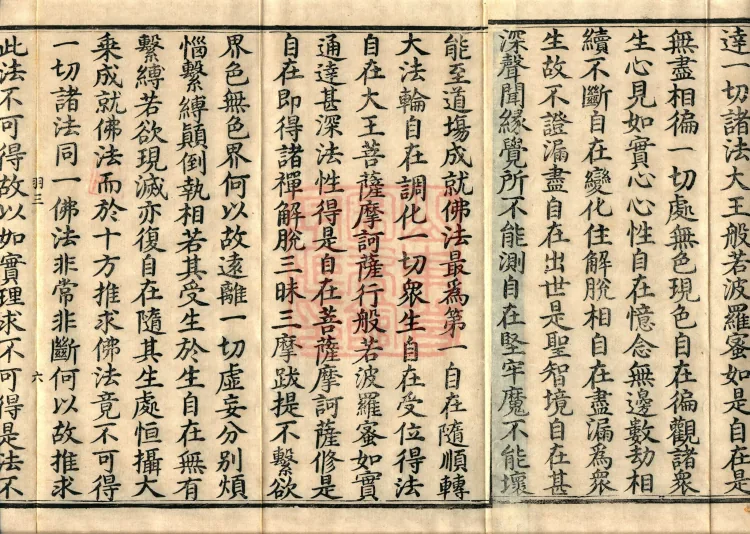 達一切諸法大王般若波羅蜜如是自在是
無盡相徧一切處無色現色自在徧觀諸衆
生心見如實心心性自在憶念無邊數劫相
續不斷自在變化住解脫相自在盡漏為衆
生故不證漏盡自在出世是聖智境自在甚
深聲聞緣覺所不能測自在堅牢魔不能壞
能至道塲成就佛法最為第一自在隨順轉
大法輪自在調化一切衆生自在受位得法
自在大王菩薩摩訶薩行般若波羅蜜如實
通達甚深法性得是自在菩薩摩訶薩修是
自在即得諸禪解脫三昧三摩跋提不繫欲
界色無色界何以故遠離一切虛妄分別煩
惱繫縛顛倒執相若其受生於生自在無有
繫縛若欲現滅亦復自在隨其生處恒攝大
乘成就佛法而於十方推求佛法竟不可得
一切諸法同一佛法非常非斷何以故推求
羽三 六
此法不可得故以如實理求不可得是法不